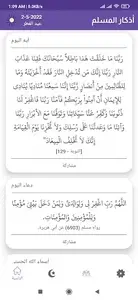 1:09 AM | 3.0KB/s
أذكار المسلم
2-5-2022
عيد الفطر
آية اليوم
رَبَّنَا مَا خَلَقْتَ هَٰذَا بَاطِلًا سُبْحَانَكَ فَقِنَا عَذَابَ
النَّارِ رَبَّنَا إِنَّكَ مَن تُدْخِلِ النَّارَ فَقَدْ أَخْزَيْتَهُ وَمَا
لِلظَّالِمِينَ مِنْ أَنصَارٍ رَّبَّنَا إِنَّنَا سَمِعْنَا مُنَادِيًا يُنَادِي
لِلْإِيمَانِ أَنْ آمِنُوا بِرَبِّكُمْ فَآمَنَّا رَبَّنَا فَاغْفِرْ لَنَا
ذُنُوبَنَا وَكَفِّرْ عَنَّا سَيِّئَاتِنَا وَتَوَفَّنَا مَعَ الْأَبْرَارِ رَبَّنَا
وَآتِنَا مَا وَعَدتَّنَا عَلَىٰ رُسُلِكَ وَلَا تُخْزِنَا يَوْمَ الْقِيَامَةِ
إِنَّكَ لَا تُخْلِفُ الْمِيعَادَ
مشاركة
دعاء اليوم
اللَّهُمَّ رَبِّ اغْفِرْ لِي وَلِوَالِدَيَّ، وَلِمَن دَخَلَ بَيْتِيَ مُؤْمِنًا
وَلِلْمُؤْمِنِينَ وَالْمُؤْمِنَاتِ،
رواه مسلم (6903) عن أبي هريرة.
مشاركة
أسماء الله الحسنى